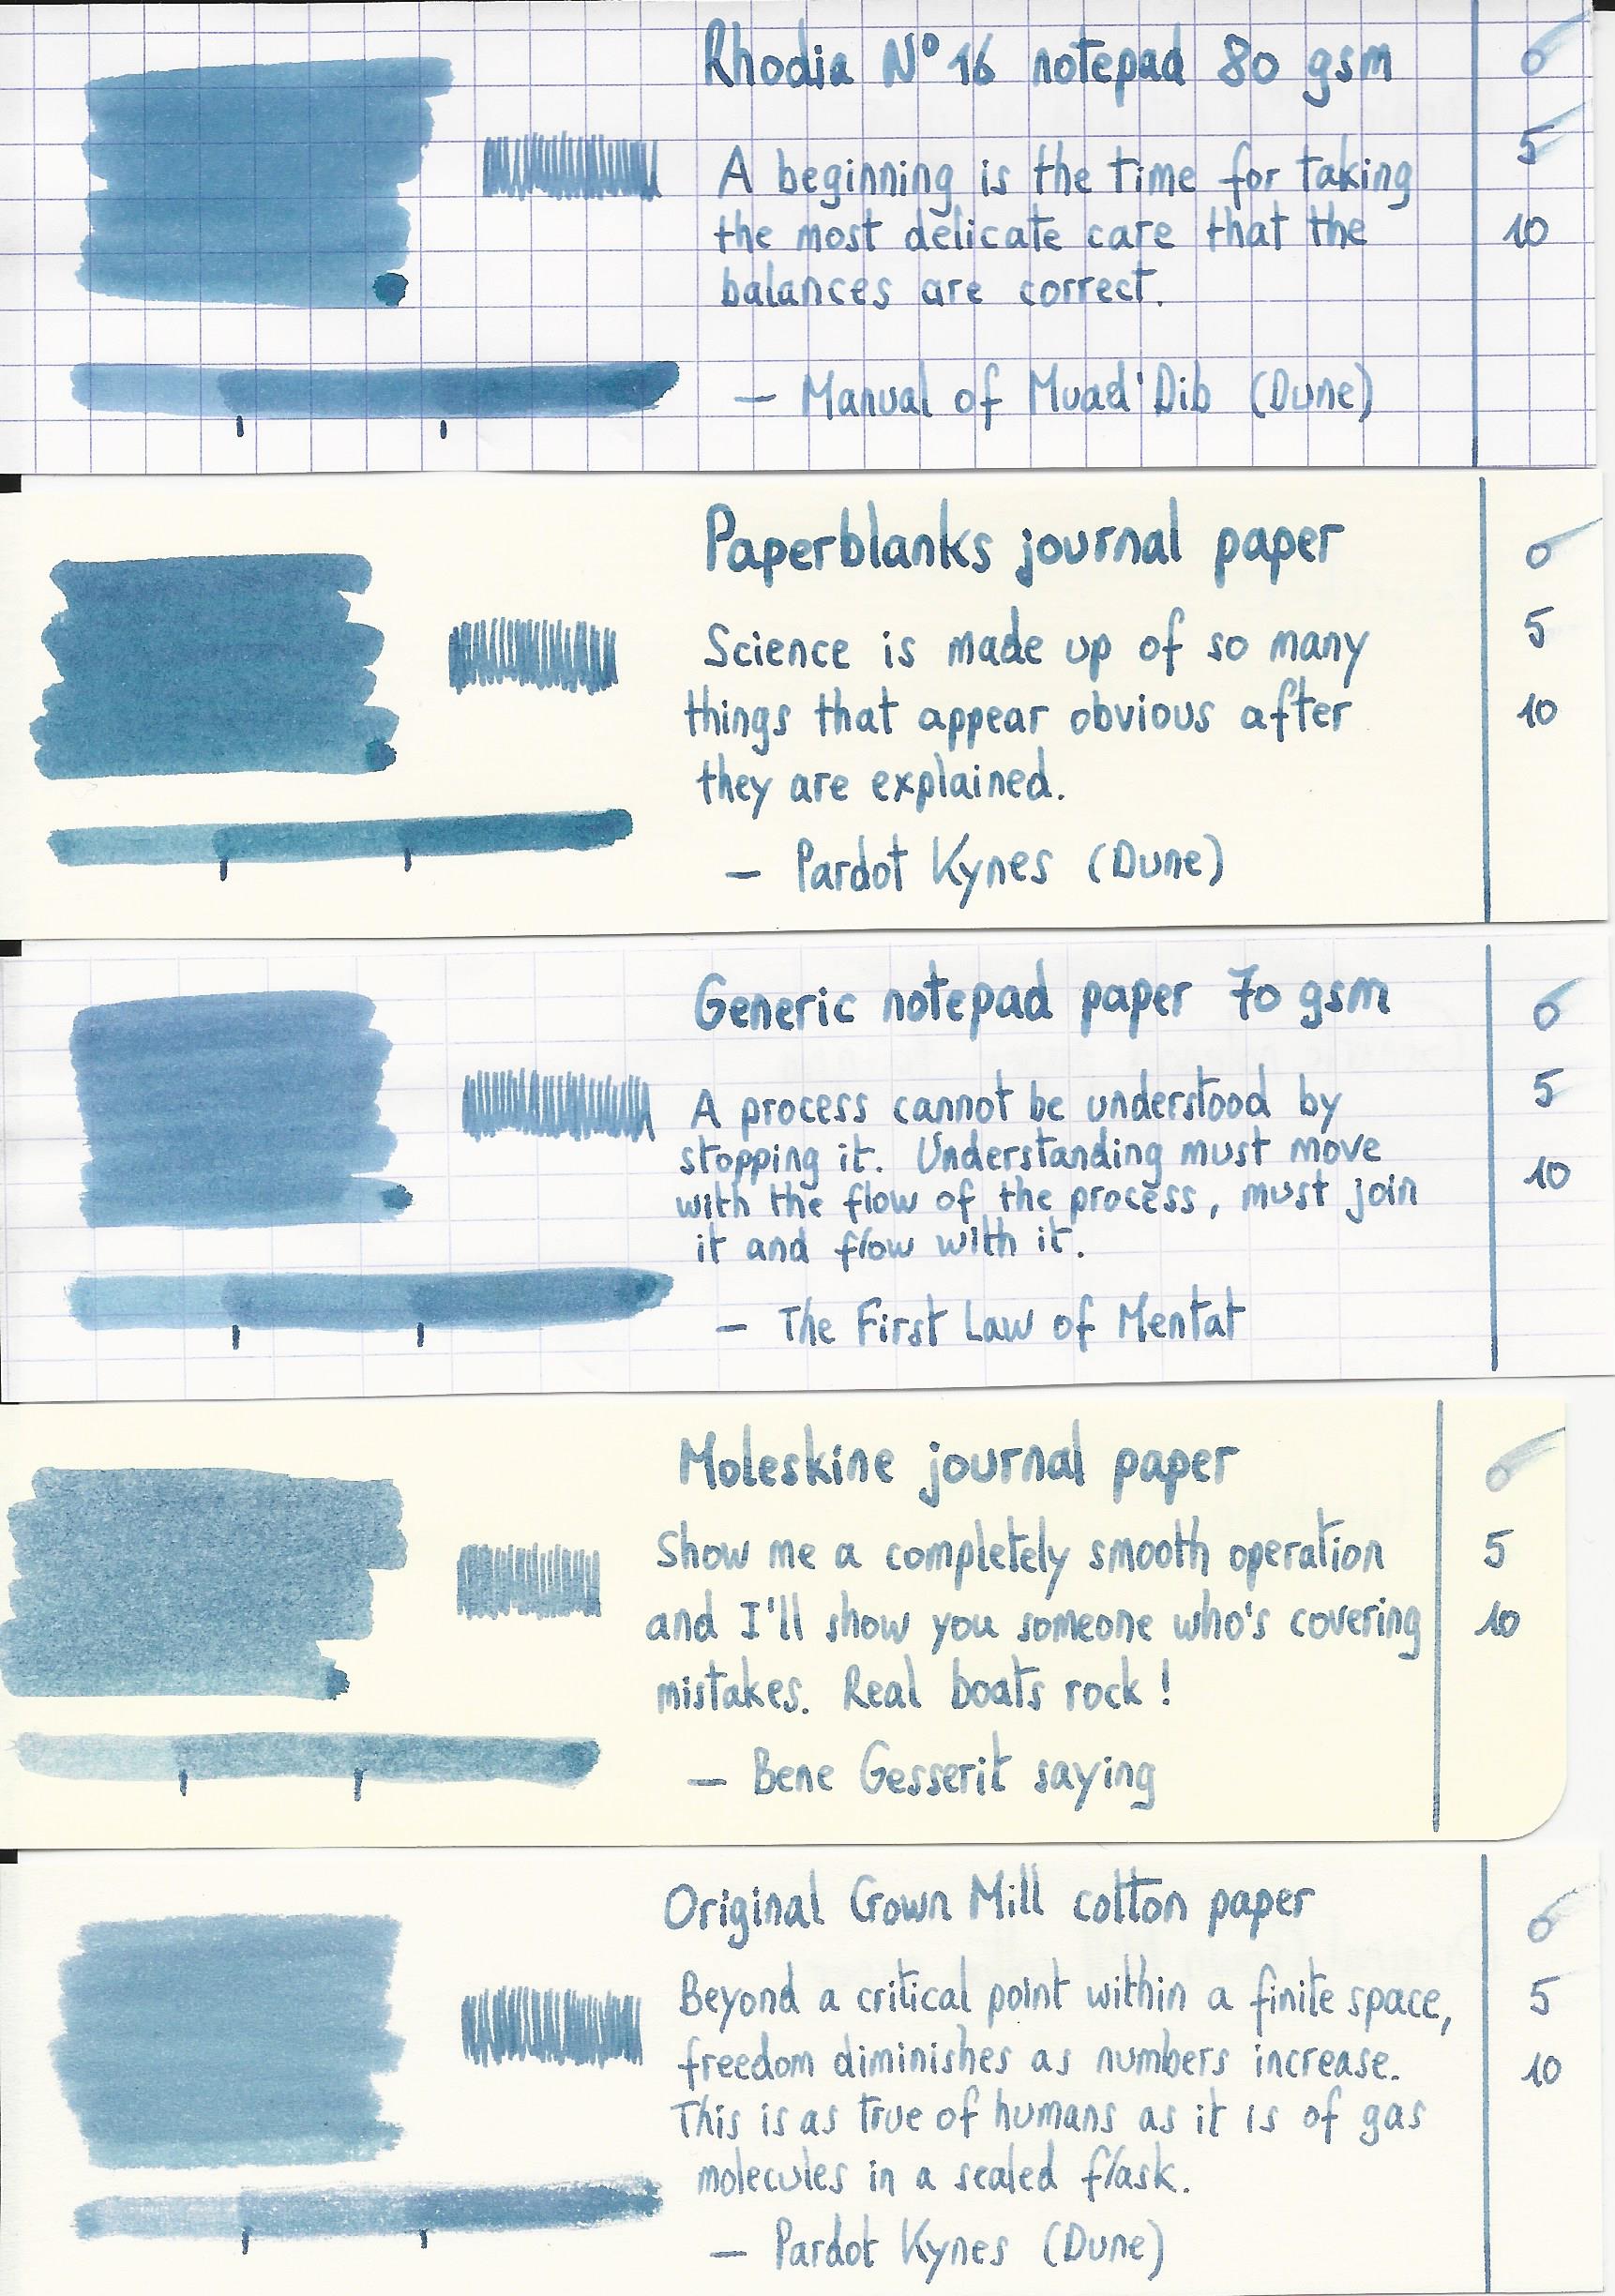 Rhodia N° 16 notepad 80 gsm
0
A beginning is the time for taking
5
the most delicate care that the
10
balances are correct.
— Manual of Muad'Dib (Dune)
Paperblanks journal paper
0
Science is made up of so many
5
things that appear obvious after
10
they are explained.
— Pardot Kynes (Dune)
Generic notepad paper 70 gsm
0
A process cannot be understood by
5
stopping it. Understanding must move
with the flow of the process, must join
10
it and flow with it.
— The First Law of Mentat
Moleskine journal paper
0
Show me a completely smooth operation
5
and I'll show you someone who's covering
10
mistakes. Real boats rock!
— Bene Gesserit saying
Original Crown Mill cotton paper
0
Beyond a critical point within a finite space,
5
freedom diminishes as numbers increase.
10
This is as true of humans as it is of gas
molecules in a sealed flask.
— Pardot Kynes (Dune)